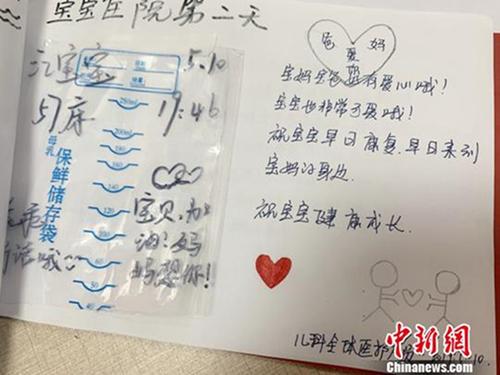 宝宝住院第二天
江宝宝
5.10
57床
17:46
母乳
保鲜储存袋
宝贝,加
油!妈
妈想你!
爸 爱 妈
宝妈宝爸 有爱心哦!
宝宝也非常可爱哦!
祝宝宝早日康复,早日来到
宝妈的身边.
祝宝宝健康成长.
儿科全体医护
中新网
Chinanews.com